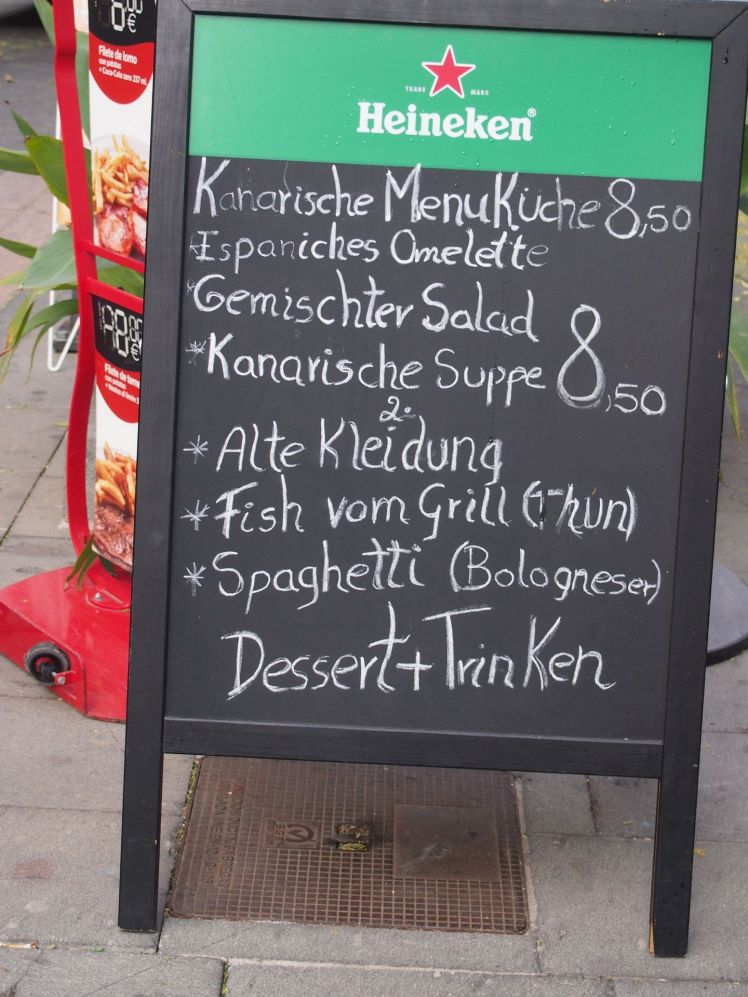 8,00
€
Filete de lomo
con patatas
+ Coca-Cola zero 237 mL
TRADE MARK
Heineken®
Kanarische MenuKüche 8,50
Espaniches Omelette
Gemischter Salad
*Kanarische Suppe 8,50
2.
* Alte Kleidung
* Fish vom Grill (Thun)
* Spaghetti (Bologneser)
Dessert + Trinken
8,00
€
Filete de
con patatas